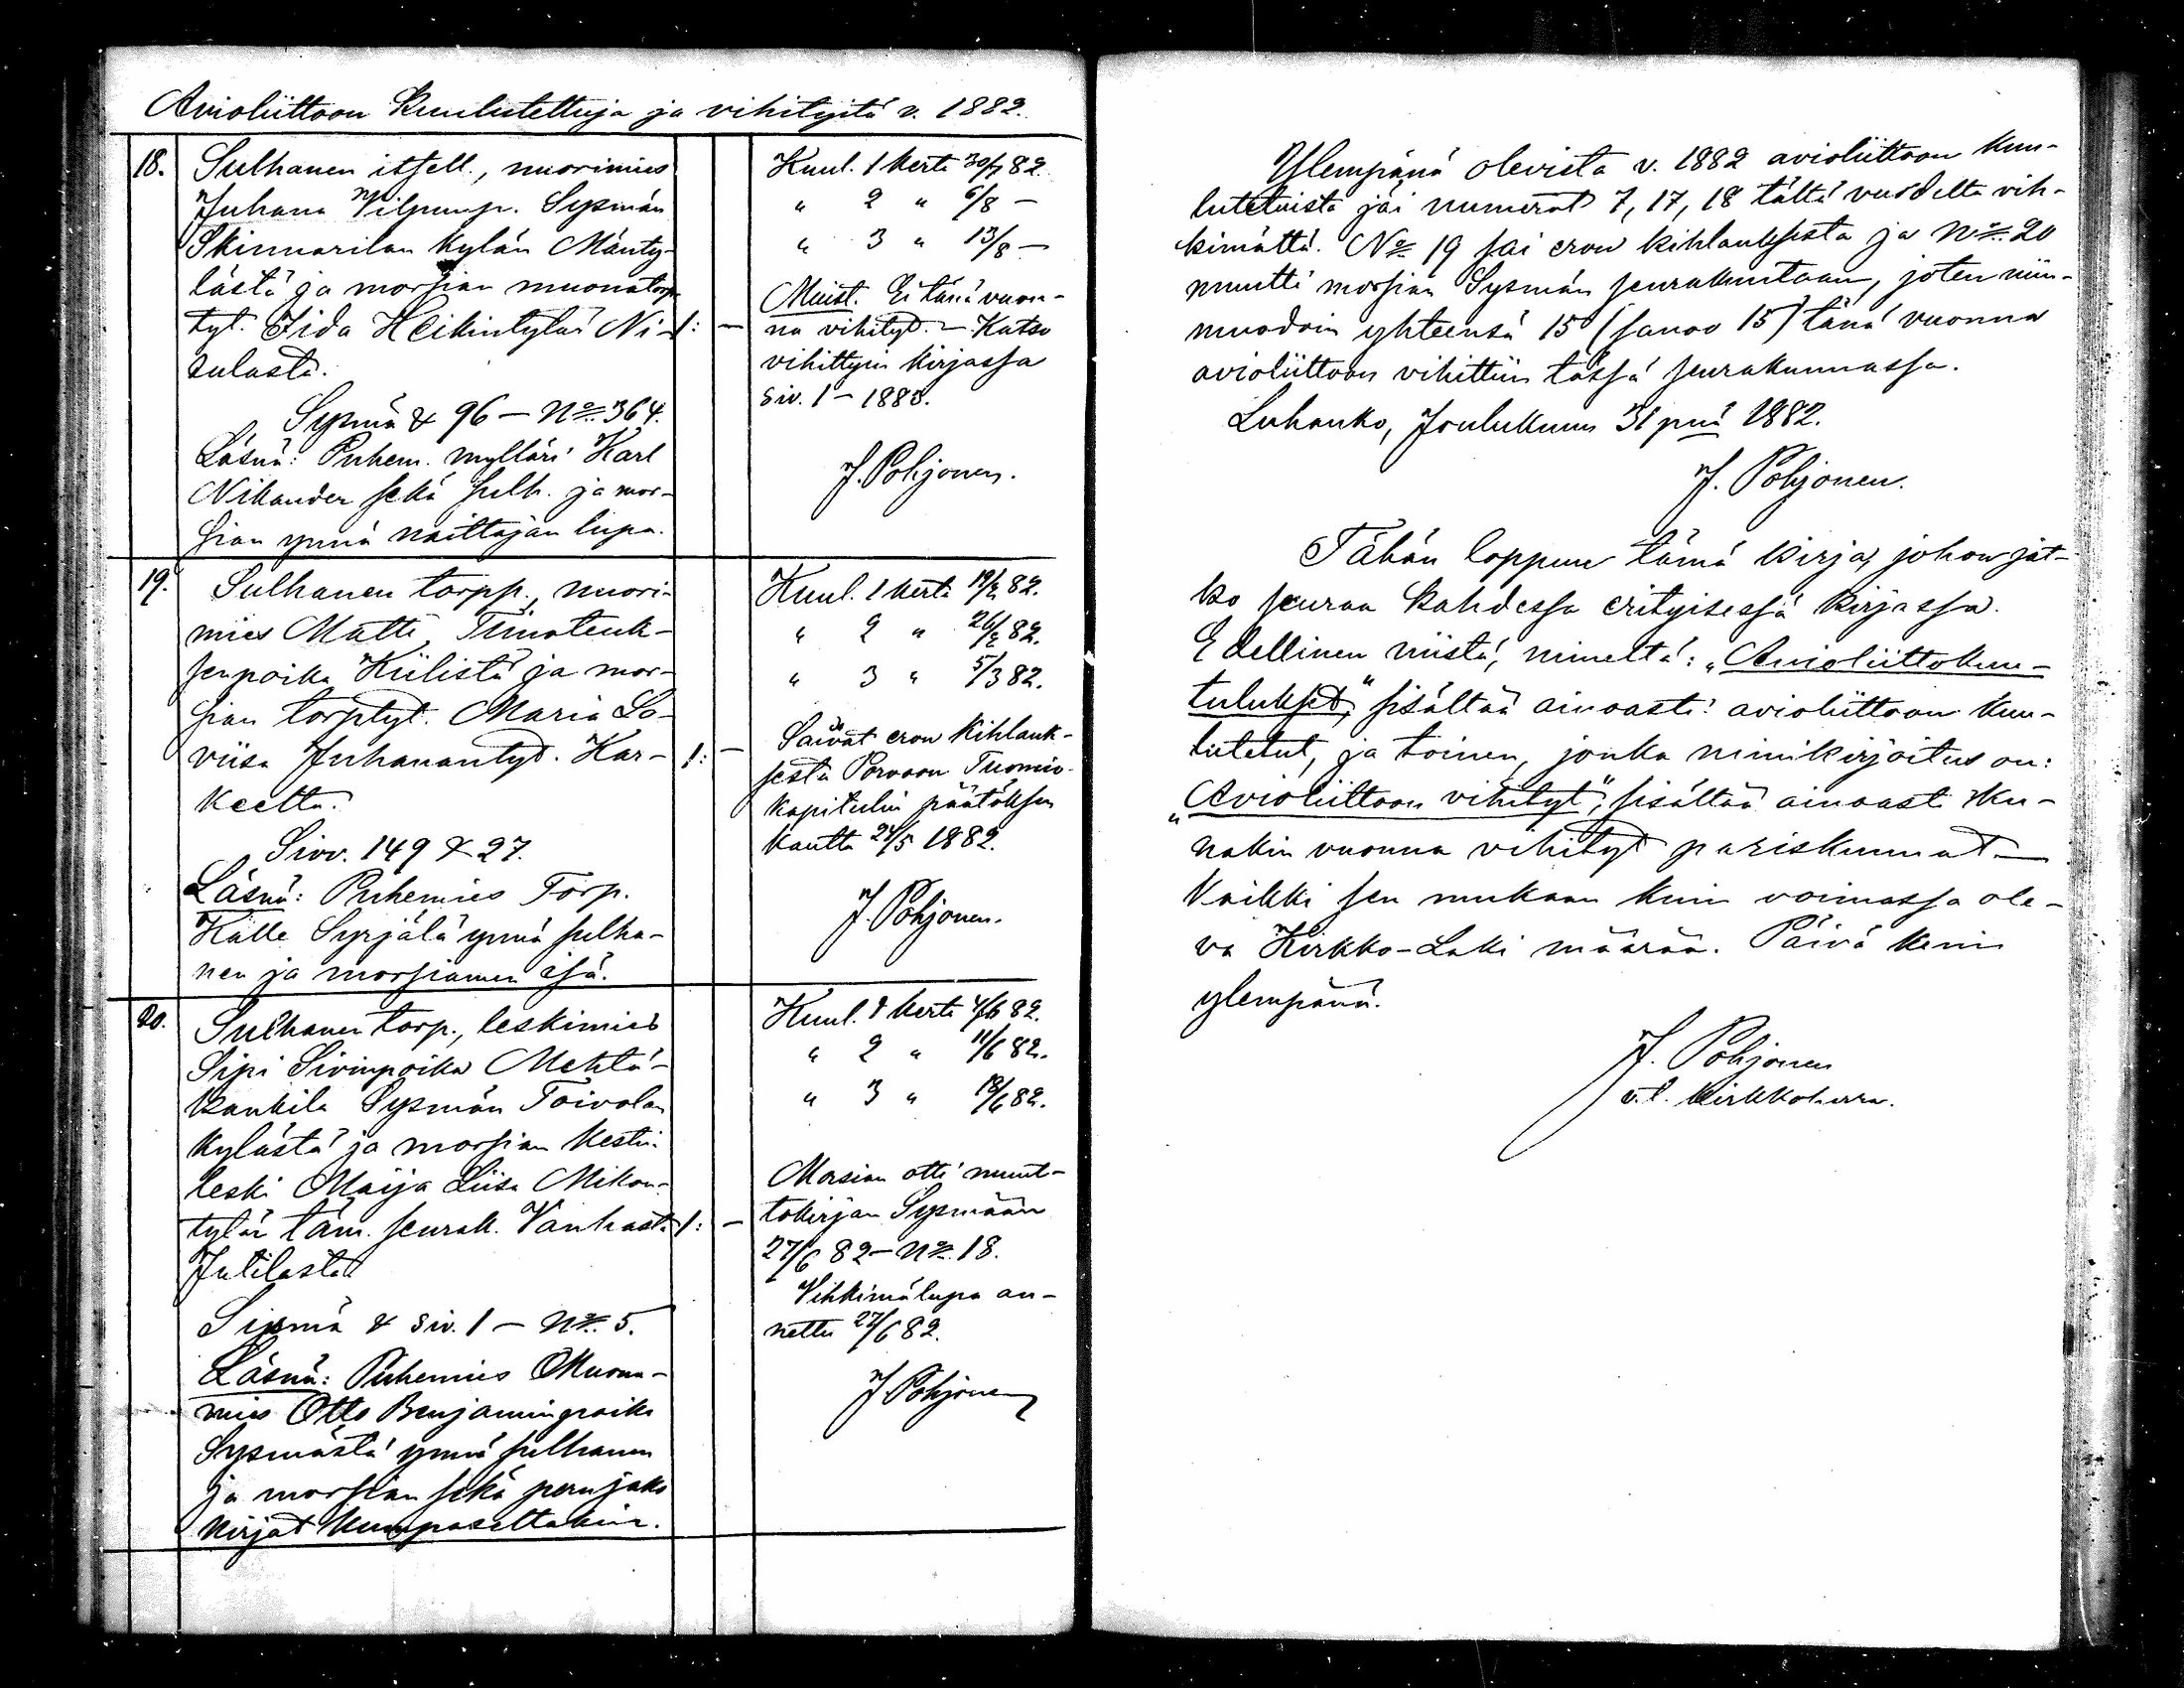 Avioliittoon kuulutettuja ja vihityitä v. 1882.
18.
Sulhanen itsell., nuorimies
Juhana Vilpunp. Sysmän
Skinnarilan kylän Mänty-
lästä ja morsian muonatorp.
tyt. Iida Heikintytär Ni-
sulasta.
1: —
Sysmä & 96 — No 364.
Läsnä: Puhem. mylläri Karl
Nikander sekä sulh. ja mor-
sian ynnä naittajan lupa.
Kuul. 1 kerta 30/7 82.
" 2 " 6/8 —
" 3 " 13/8 —
Muist. Ei tänä vuon-
na vihityt. — Katso
vihittyin kirjassa
siv. 1 — 1883.
J. Pohjonen.
19.
Sulhanen torpp., nuori-
mies Matti Timoteuk-
senpoika Kiilistä ja mor-
sian torptyt. Maria Lo-
viisa Juhanantyt. Har-
keelta.
1: —
Sivv. 149 & 27.
Läsnä: Puhemies Torp.
Kalle Syrjälä ynnä sulha-
nen ja morsiamen isä.
Kuul. 1 kerta 19/2 82.
" 2 " 26/2 82.
" 3 " 5/3 82.
Saivat eron kihlauk-
sesta Porvoon Tuomio-
kapitulin päätöksen
kautta 24/5 1882.
J. Pohjonen.
20.
Sulhanen torp., leskimies
Sipi Sivinpoika Mehtä-
Kankila Sysmän Toivolan
kylästä ja morsian kesti-
leski Maija Liisa Mikon-
tytär täm. seurak. Vanhasta
Jutilasta.
1: —
Sysmä & siv. 1 — No 5.
Läsnä: Puhemies Muona-
mies Otto Benjaminpoika
Sysmästä ynnä sulhanen
ja morsian sekä perujako
kirjat kumpaseltakin.
Kuul. 1 kerta 4/6 82.
" 2 " 11/6 82.
" 3 " 18/6 82.
Morsian otti muut-
tokirjan Sysmään
27/6 82 — No 18.
Vihkimälupa an-
nettu 27/6 82.
J Pohjonen
Ylempänä olevista v. 1882 avioliittoon kuu-
lutetuista jäi numerot 7, 17, 18 tältä vuodelta vih-
kimättä. No 19 sai eron kihlauksesta ja No 20
muutti morsian Sysmän seurakuntaan, joten niin-
muodoin yhteensä 15 (sanoo 15) tänä vuonna
avioliittoon vihittiin tässä seurakunnassa.
Luhanko, Joulukuun 31 pnä 1882.
J. Pohjonen.
Tähän loppuu tämä kirja, johon jat-
ko seuraa kahdessa erityisessä kirjassa.
Edellinen niistä, nimeltä: "Avioliittokuu-
lutukset," sisältää ainoasti avioliittoon kuu-
lutetut, ja toinen, jonka nimikirjoitus on:
"Avioliittoon vihityt", sisältää ainoasti ku-
nakin vuonna vihityt pariskunnat —
Kaikki sen mukaan kuin voimassa ole-
va Kirkko-Laki määrää. Päivä kuin
ylempänä.
J. Pohjonen
v.t. kirkkoherra.